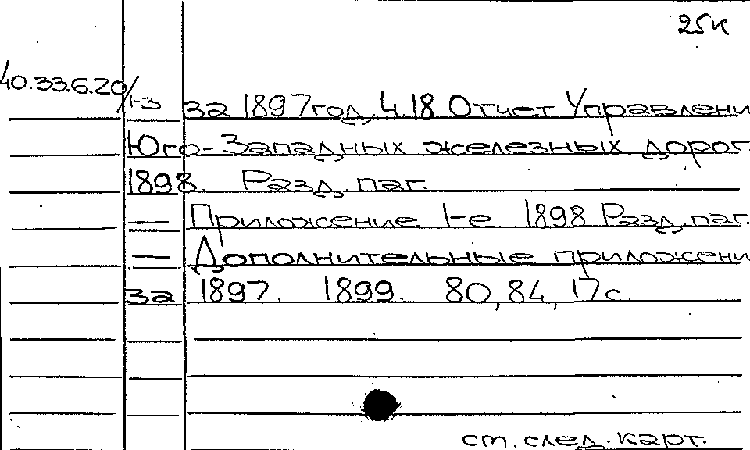 25к
40.33.6.20/1-3 за 1897 год. Ч.18 Отчет Управлени
Юго-Западных железных дорог.
1898. Разд. паг.
— Приложение 1-е 1898 Разд. паг.
— Дополнительные приложени
за 1897. 1899. 80, 84, 17 с.
см. след. карт.